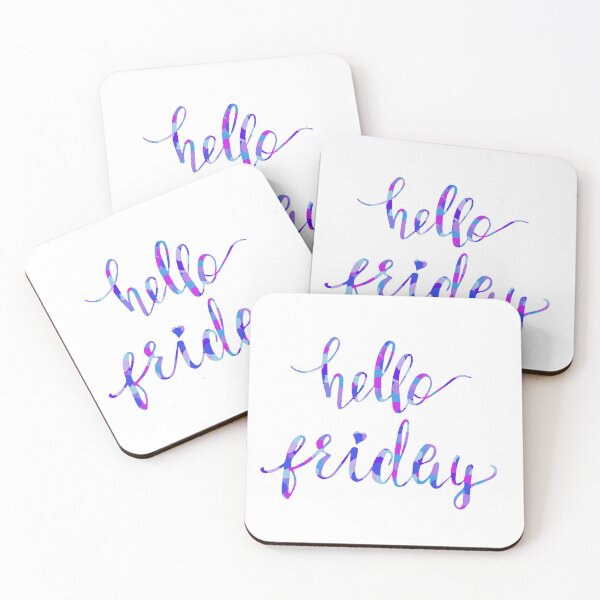 hello
hello
friday
hello
friday
hello
friday